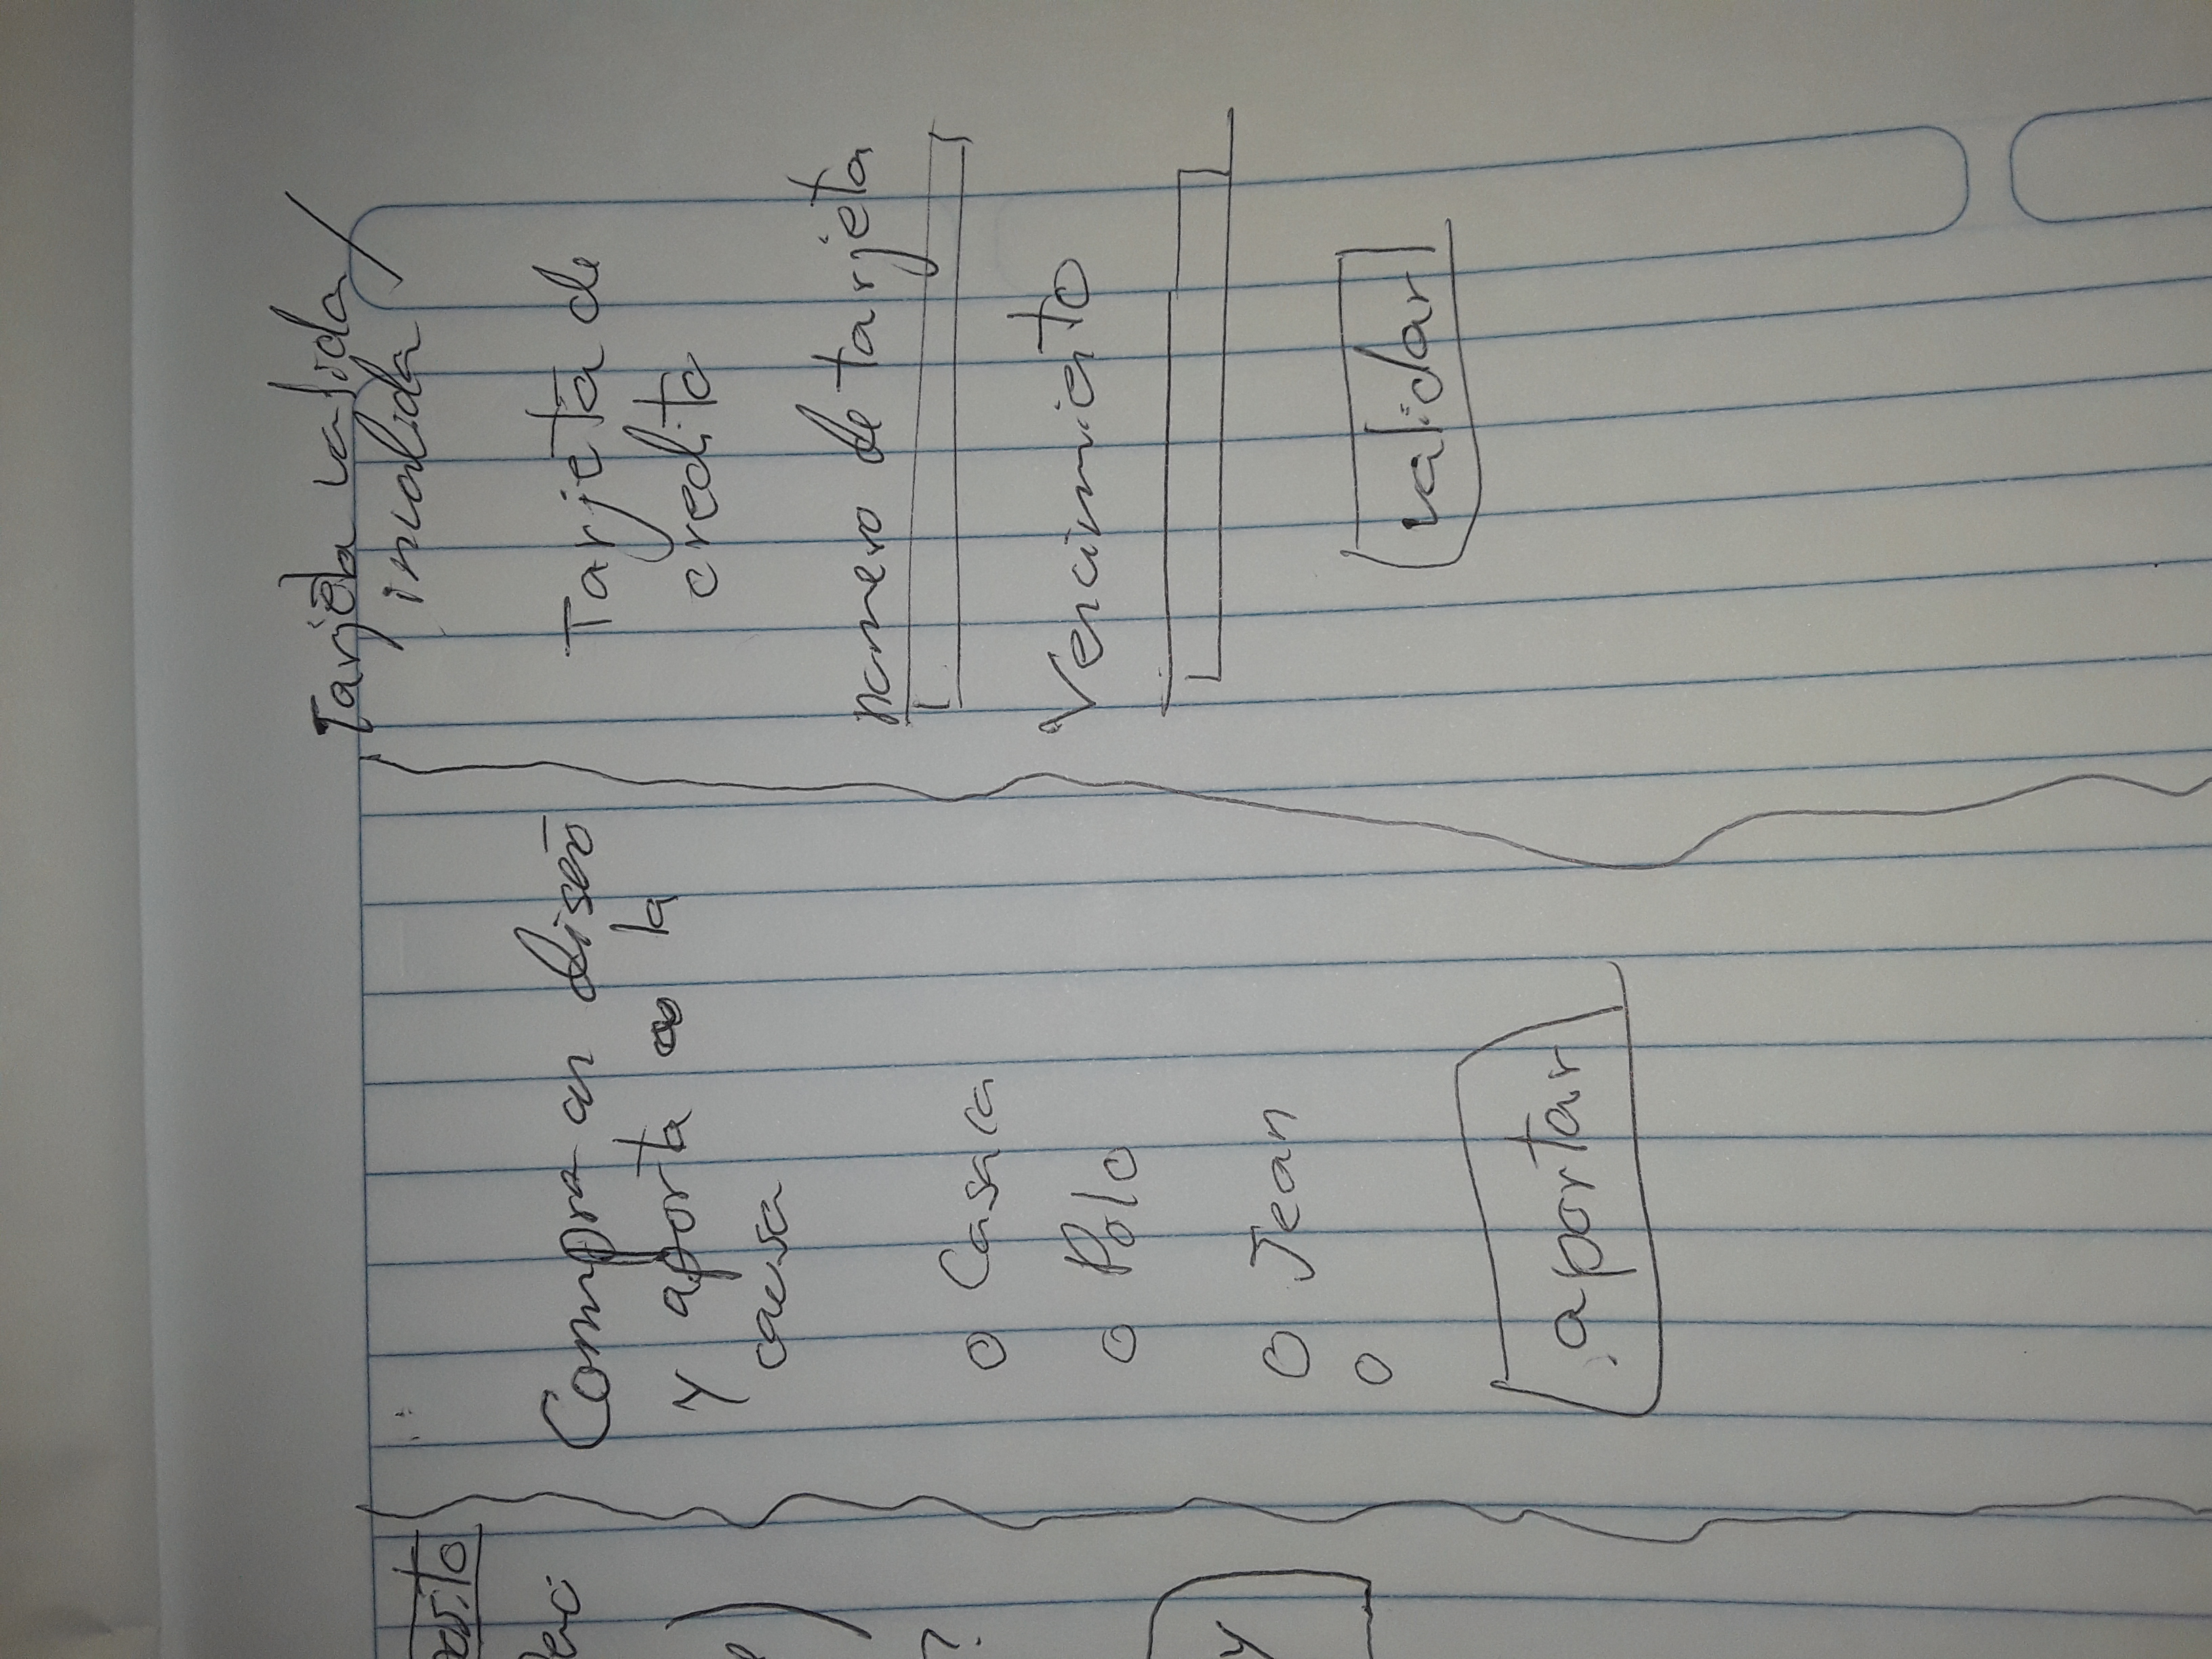 Compra un diseño
y aporta a la
causa
Casaca
Polo
Jean
aportar
Tarjeta valida/
invalida
Tarjeta de
credito
numero de tarjeta
Vencimiento
validar